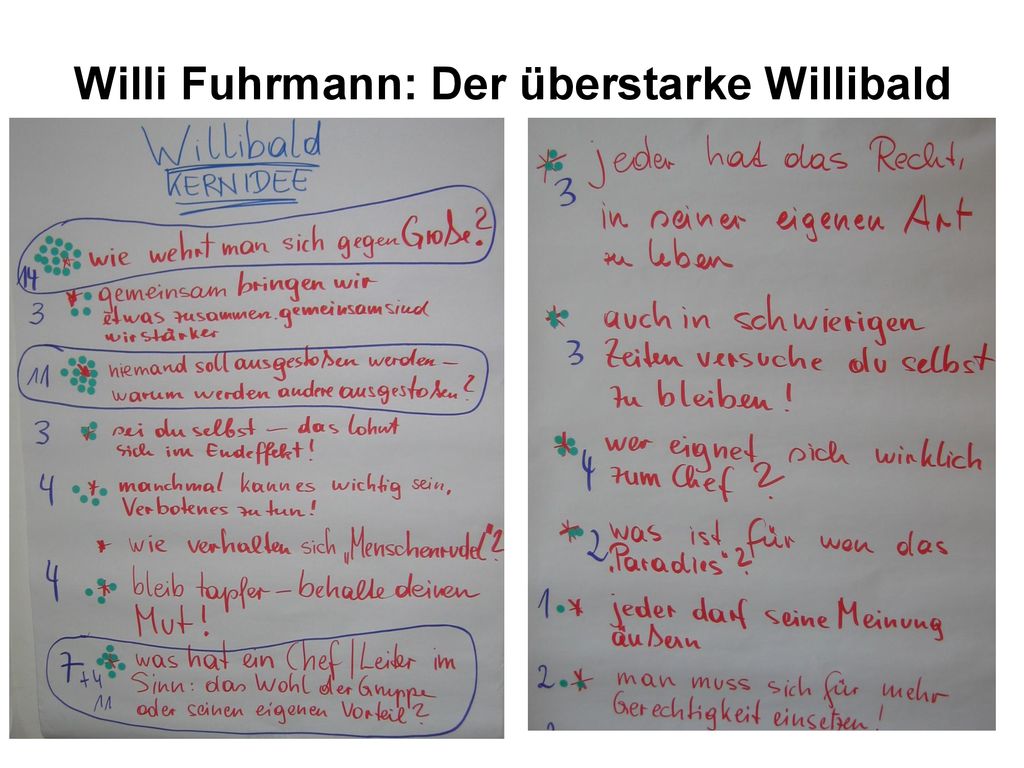 Willi Fuhrmann: Der überstarke Willibald
Willibald
KERNIDEE
14 * wie wehrt man sich gegen Große?
3 * gemeinsam bringen wir
etwas zusammen. gemeinsam sind
wir stärker
11 * niemand soll ausgestoßen werden –
warum werden andere ausgestoßen?
3 * sei du selbst – das lohnt
sich im Endeffekt!
4 * manchmal kann es wichtig sein,
Verbotenes zu tun!
* wie verhalten sich „Menschenrudel"?
4 * bleib tapfer – behalte deinen
Mut!
7 * was hat ein Chef/Leiter im
+4 Sinn: das Wohl der Gruppe
11 oder seinen eigenen Vorteil?
* jeder hat das Recht,
3 in seiner eigenen Art
zu leben
* auch in schwierigen
3 Zeiten versuche du selbst
zu bleiben!
* wer eignet sich wirklich
4 zum Chef?
* was ist für wen das
2 „Paradies"?
1 * jeder darf seine Meinung
äußern
2 * man muss sich für mehr
Gerechtigkeit einsetzen!